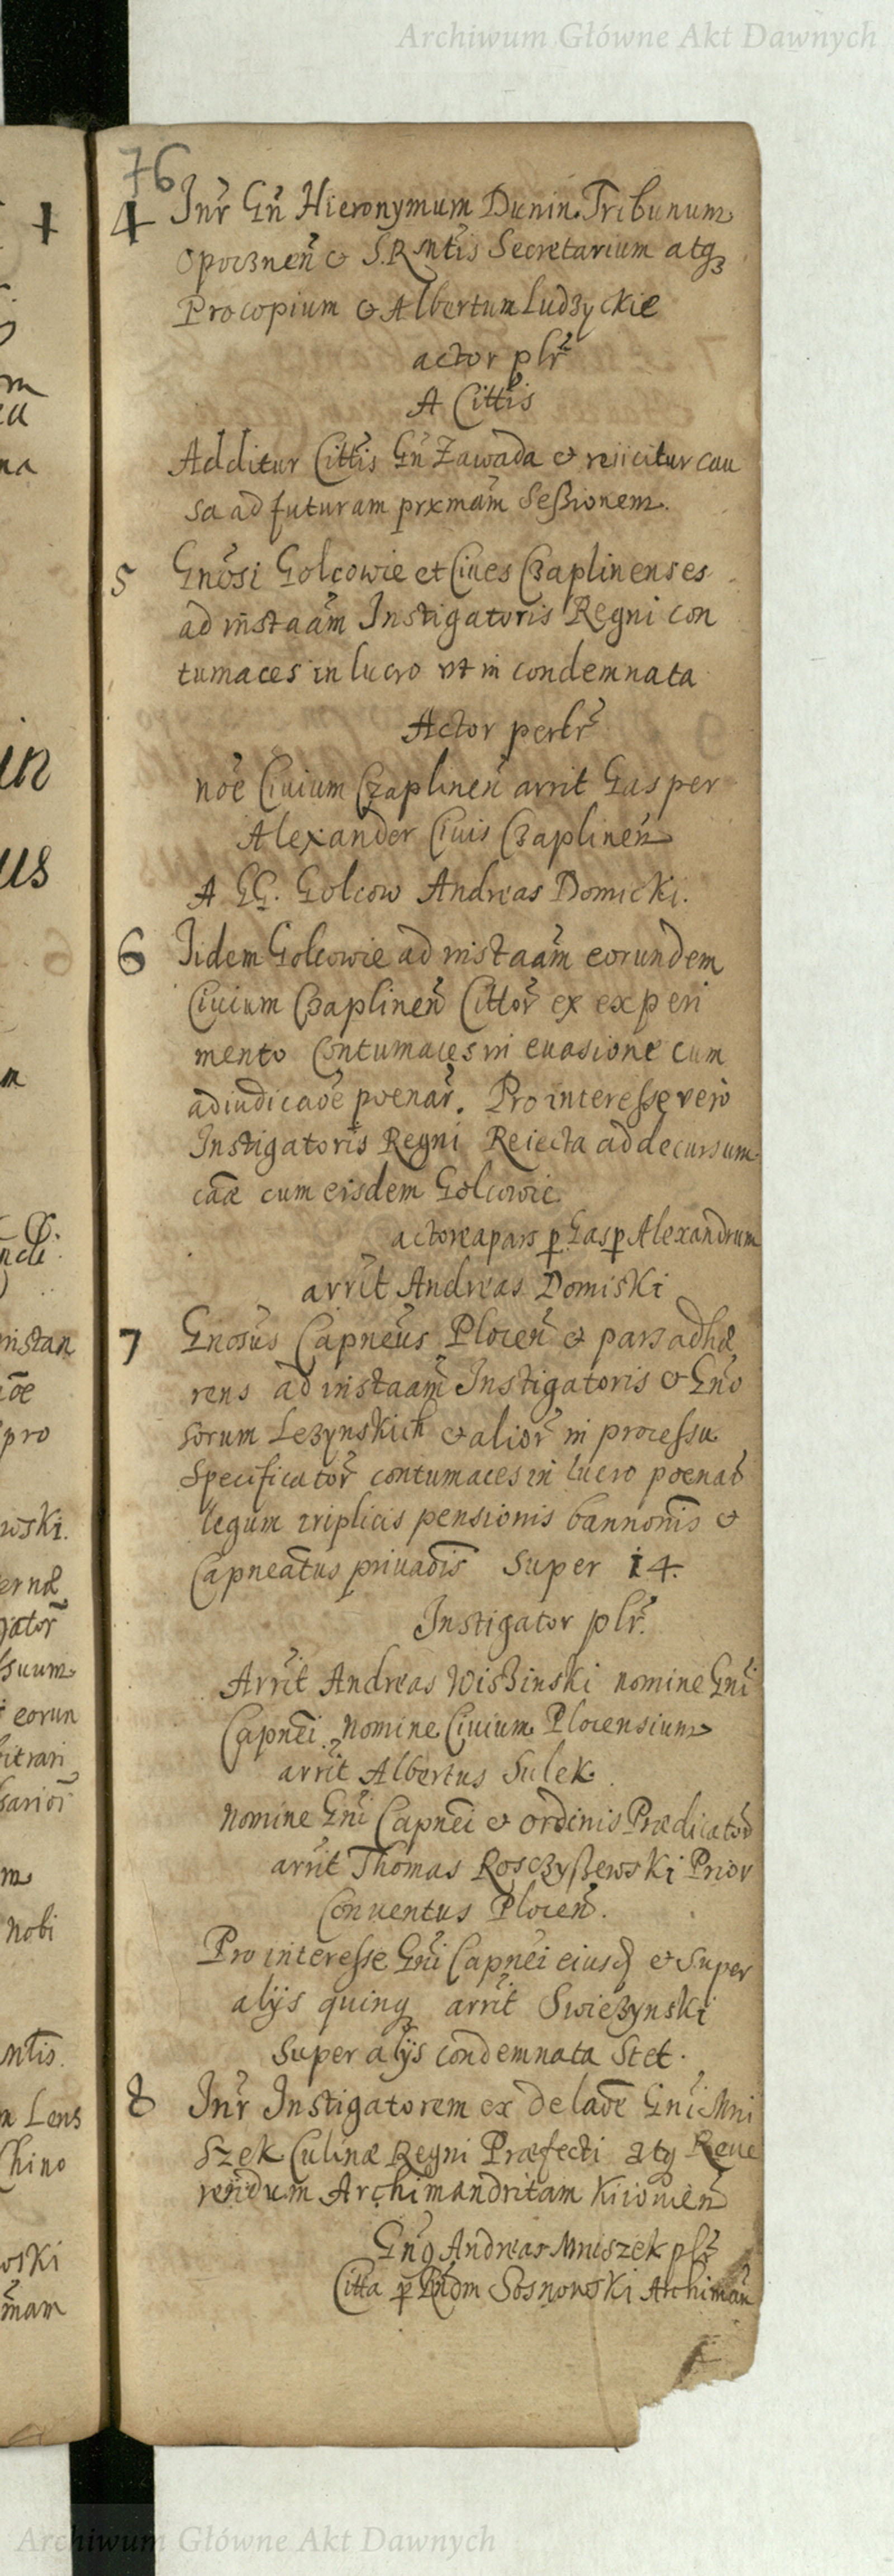 Archiwum Główne Akt Dawnych
76
4 Inr̃ Gñ Hieronymum Dunin Tribunum
Opocznen̄ & S.R.Mtis Secretarium atq3
Procopium & Albertum Ludzyckie
actor plr̃
A Cittis
Additur Cittis Gn̄ Zawada & reiicitur cau
sa ad futuram prxmam̄ Seßionem.
5 Gnōsi Golcowie et Ciues Czaplinenses
ad instaām Instigatoris Regni con
tumaces in lucro vt in condemnata
Actor perlr̃
noē Ciuium Czaplinen̄ arrit Gasper
Alexander Ciuis Czaplinen̄
A GG. Golcow Andreas Domicki.
6 Iidem Golcowie ad instaām eorundem
Ciuium Czaplinen̄ Cittor̃ ex experi
mento Contumaces in euasione cum
adiudicaōe poenar̃. Pro interesse vero
Instigatoris Regni Reiecta ad decursum
caāe cum eisdem Golcowie
actorea pars p Gasp Alexandrum
arrit Andreas Domiski
7 Gnosus Capneūs Plocen̄ & pars adhæ
rens ad instaām Instigatoris & Gno
sorum Lezynskich & alior̃ in processu
Specificator̃ contumaces in lucro poenar̃
legum triplicis pensionis bannonis̄ &
Capneatus̄ priuaōis Super 14.
Instigator plr̃.
Arrit Andreas Wiszinski nomine Gni
Capnei. Nomine Ciuium Plocensium
arrit Albertus Sulek.
Nomine Gni Capnei & ordinis Prædicator̃
arrit Thomas Rosczyßewski Prior
Conuentus Plocen̄.
Pro interesse Gni Capnei eiusd & super
alijs quinq arrit Swiezynski
Super alijs condemnata Stet.
8 Inr̃ Instigatorem ex delaōe Gni Mni
szek Culinæ Regni Præfecti atq Reue
rendum Archimandritam Kiiouien̄
Gnō Andreas Mniszek plr̃
Citta p Rndm Sosnowski Archiman̄
Archiwum Główne Akt Dawnych